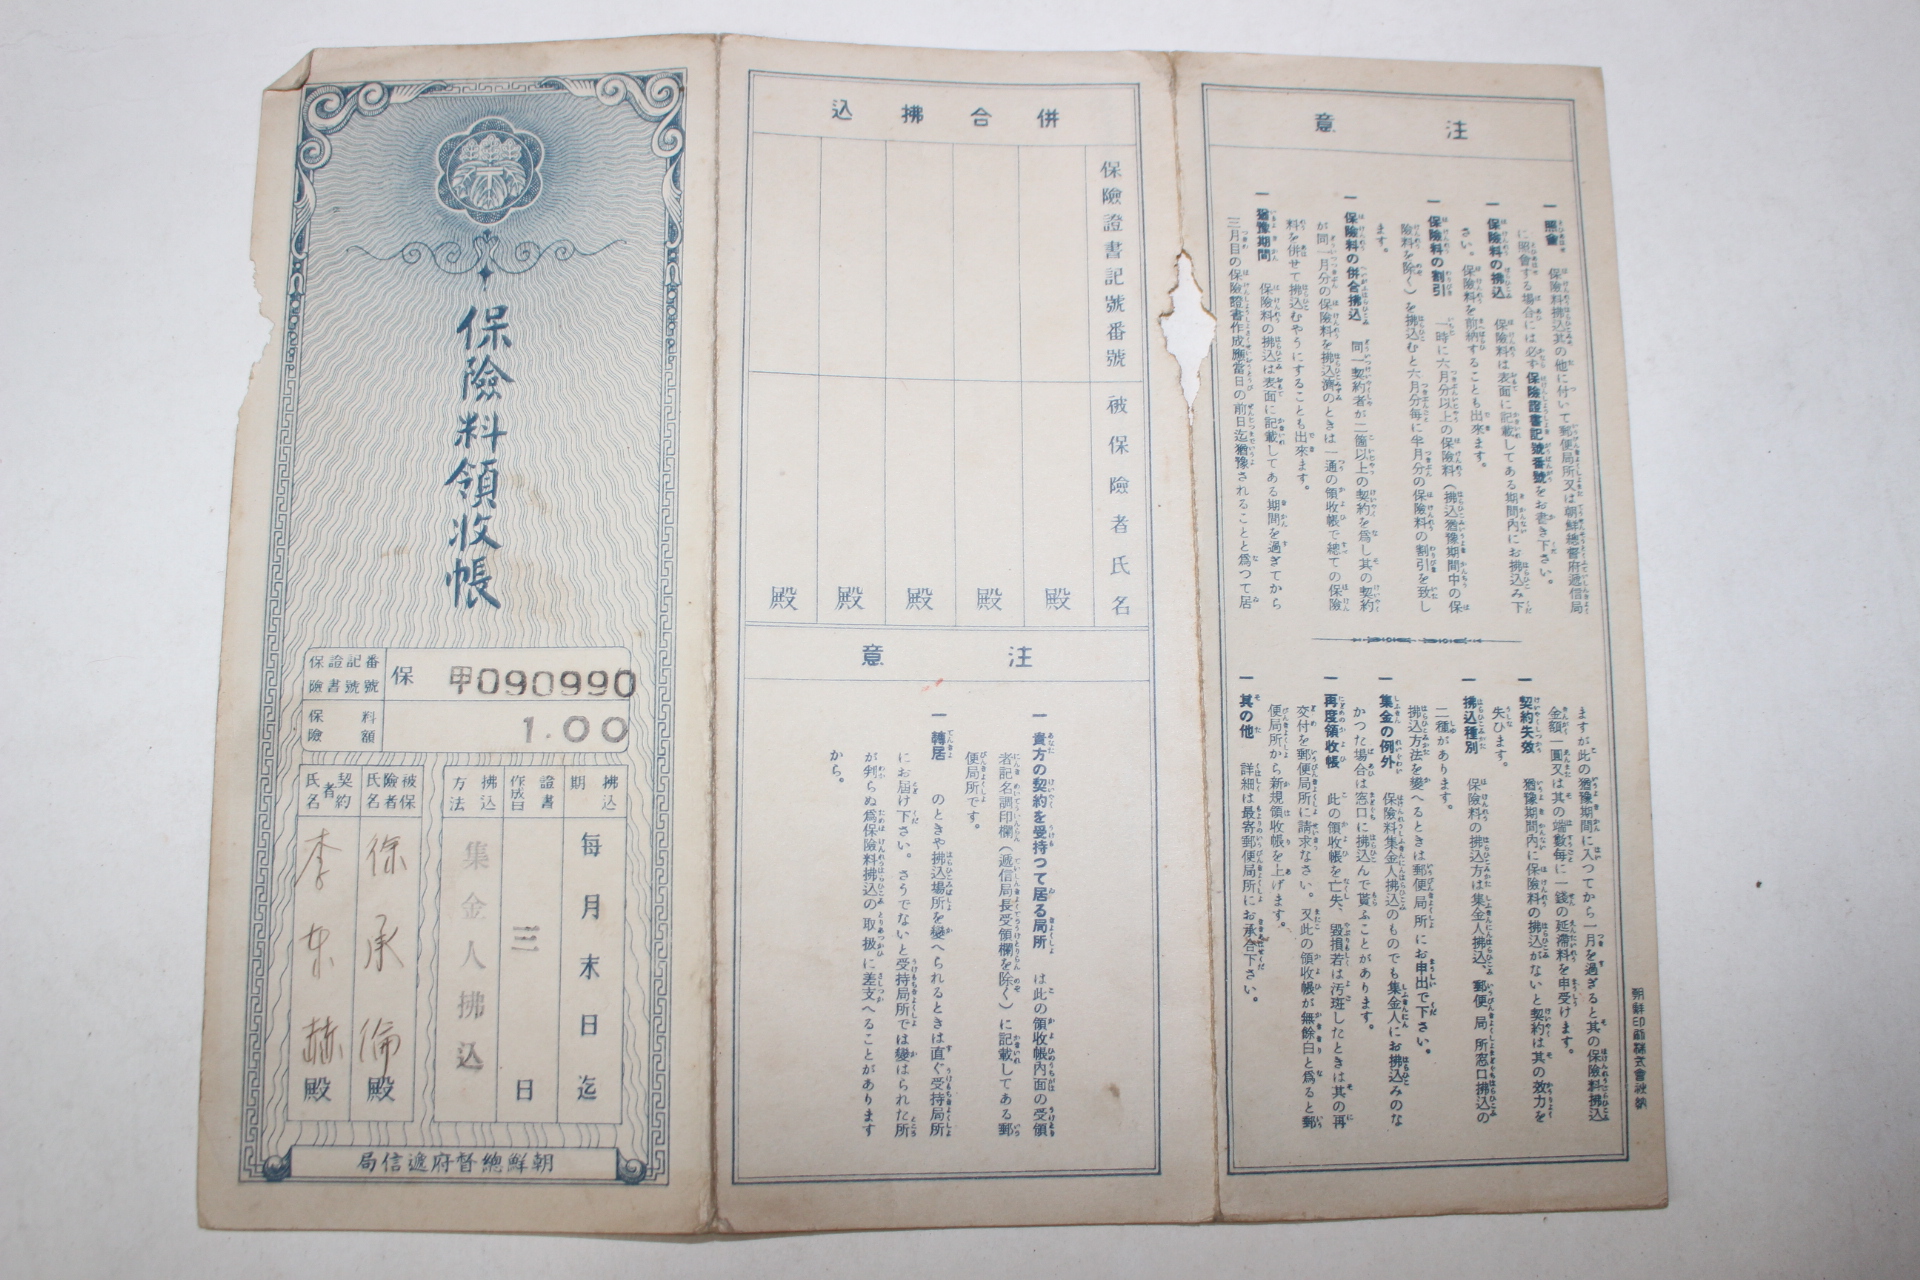 保險料領收帳
保險證書記號番號
保 甲090990
保險料額
1.00
拂込期
每月末日迄
證書作成日
三日
拂込方法
集金人拂込
被保險者氏名
徐承倫殿
契約者氏名
李東赫殿
朝鮮總督府遞信局
併合拂込
保險證書記號番號
被保險者氏名
殿
殿
殿
殿
殿
注意
一 貴方の契約を受持つて居る局所 は此の領收帳內面の受領
者記名調印欄(遞信局長受領欄を除く)に記載してある郵
便局所です。
一 轉居 のときや拂込場所を變へられるときは直ぐ受持局所
にお屆け下さい。さうでないと受持局所では變はられた所
が判らぬ爲保險料拂込の取扱に差支へることがあります
から。
注意
一 照會 保險料拂込其の他に付いて郵便局所又は朝鮮總督府遞信局
に照會する場合には必ず保險證書記號番號をお書き下さい。
一 保險料の拂込 保險料は表面に記載してある期間內にお拂込み下
さい。保險料を前納することも出來ます。
一 保險料の割引 一時に六月分以上の保險料(拂込猶豫期間中の保
險料を除く)を拂込むと六月分每に半月分の保險料の割引を致し
ます。
一 保險料の併合拂込 同一契約者が二箇以上の契約を爲し其の契約
が同一月分の保險料を拂込濟のときは一通の領收帳で總ての保險
料を併せて拂込むやうにすることも出來ます。
一 猶豫期間 保險料の拂込は表面に記載してある期間を過ぎてから
三月目の保險證書作成應當日の前日迄猶豫されることと爲つて居
ますが此の猶豫期間に入つてから一月を過ぎると其の保險料拂込
金額一圓又は其の端數每に一錢の延滯料を申受けます。
一 契約失效 猶豫期間內に保險料の拂込がないと契約は其の效力を
失ひます。
一 拂込種別 保險料の拂込方は集金人拂込、郵便局所窓口拂込の
二種があります。
拂込方法を變へるときは郵便局所にお申出で下さい。
一 集金の例外 保險料集金人拂込のものでも集金人にお拂込みのな
かつた場合は窓口に拂込んで貰ふことがあります。
一 再度領收帳 此の領收帳を亡失、毀損若は汚斑したときは其の再
交付を郵便局所に請求なさい。又此の領收帳が無餘白と爲ると郵
便局所から新規領收帳を上げます。
一 其の他 詳細は最寄郵便局所にお承合下さい。
朝鮮印刷株式會社納